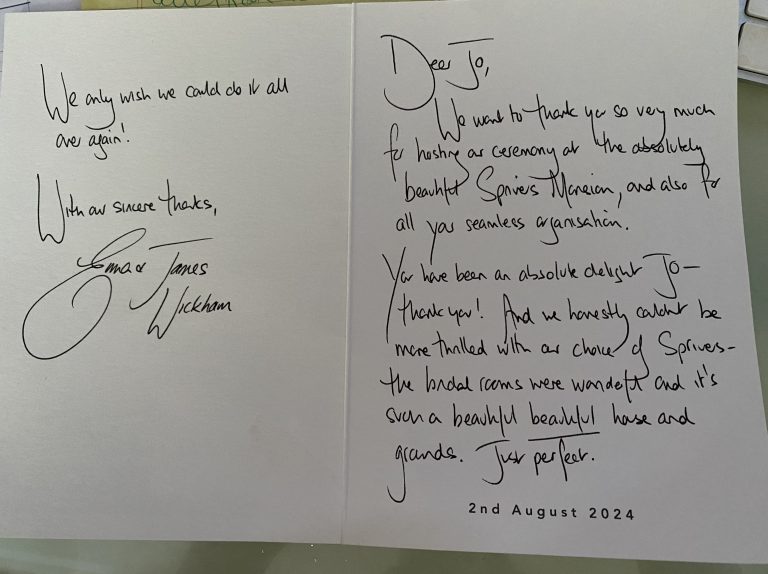 Dear Jo,
We want to thank you so very much
for hosting our ceremony at the absolutely
beautiful Sprivers Mansion, and also for
all your seamless organisation.
You have been an absolute delight Jo –
thank you! And we honestly couldn't be
more thrilled with our choice of Sprivers –
the bridal rooms were wonderful and it's
such a beautiful beautiful house and
grounds. Just perfect.
2nd August 2024
We only wish we could do it all
over again!
With our sincere thanks,
Emma & James
Wickham